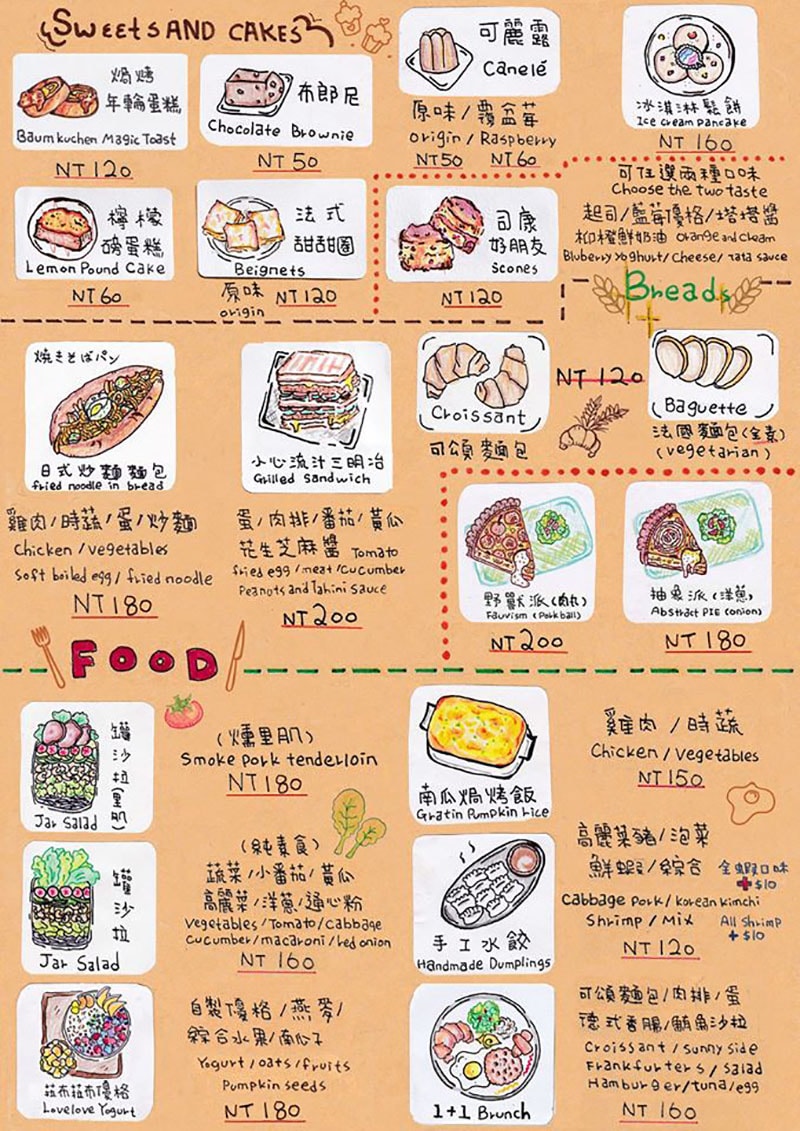 SWEETS AND CAKES
焗烤
年輪蛋糕
Baumkuchen Magic Toast
NT 120
布郎尼
Chocolate Brownie
NT 50
可麗露
Canelé
原味/覆盆莓
origin / Raspberry
NT 50 NT 60
冰淇淋鬆餅
Ice cream pancake
NT 160
檸檬
磅蛋糕
Lemon Pound Cake
NT 60
法式
甜甜圈
Beignets
原味 NT 120
origin
司康
好朋友
Scones
NT 120
可任選兩種口味
Choose the two taste
起司/藍莓優格/塔塔醬
柳橙鮮奶油 orange and cream
Bluberry Yoghurt/Cheese/Tata sauce
Breads
焼きそばパン
日式炒麵麵包
fried noodle in bread
雞肉/時蔬/蛋/炒麵
Chicken / vegetables
soft boiled egg / fried noodle
NT 180
小心流汁三明治
Grilled Sandwich
蛋/肉排/番茄/黃瓜
花生芝麻醬 Tomato
fried egg/meat/cucumber
Peanots and Tahini sauce
NT 200
Croissant
可頌麵包
NT 120
Baguette
法國麵包(全素)
(vegetarian)
野獸派(肉丸)
Fauvism (Pork ball)
NT 200
抽象派(洋蔥)
Abstract PIE (onion)
NT 180
FOOD
罐沙拉(里肌)
Jar Salad
(燻里肌)
Smoke pork tenderloin
NT 180
罐沙拉
Jar Salad
(純素食)
蔬菜/小番茄/黃瓜
高麗菜/洋蔥/通心粉
vegetables/Tomato/cabbage
cucumber/macaroni/red onion
NT 160
菈布菈布優格
Lovelove Yogurt
自製優格/燕麥/
綜合水果/南瓜子
Yogurt/oats/fruits
Pumpkin seeds
NT 180
南瓜焗烤飯
Gratin Pumpkin rice
雞肉/時蔬
Chicken / vegetables
NT 150
手工水餃
Handmade Dumplings
高麗菜豬/泡菜
鮮蝦/綜合 全蝦口味
+$10
Cabbage pork/Korean kimchi
Shrimp / Mix All shrimp
+$10
NT 120
1+1 Brunch
可頌麵包/肉排/蛋
德式香腸/鮪魚沙拉
Croissant / sunny side
Frankfurters / salad
Hamburger/tuna/egg
NT 160